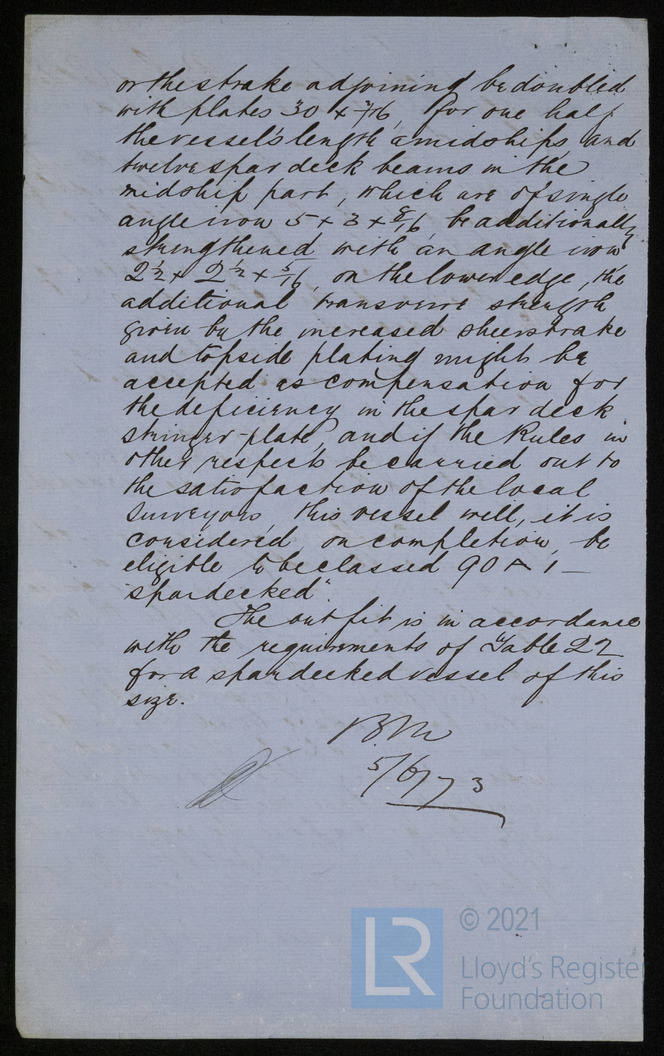 or the strake adjoining be doubled
with plates 30 x 7/16, for one half
the vessel's length amidships and
twelve spar deck beams in the
midship part, which are of single
angle iron 5 x 3 x 8/16, be additionally
strengthened with an angle iron
2½ x 2½ x 5/16 on the lower edge, the
additional transverse strength
given by the increased sheerstrake
and topside plating might be
accepted as compensation for
the deficiency in the spar deck
stringer plate, and if the Rules in
other respects be carried out to
the satisfaction of the local
Surveyors, this vessel will, it is
considered, on completion, be
eligible to be classed 90 A 1 –
"spardecked".
The outfit is in accordance
with the requirements of Table 22
for a spardecked vessel of this
size.
B.M
5/6/73
LR
© 2021
Lloyd's Registe
Foundation